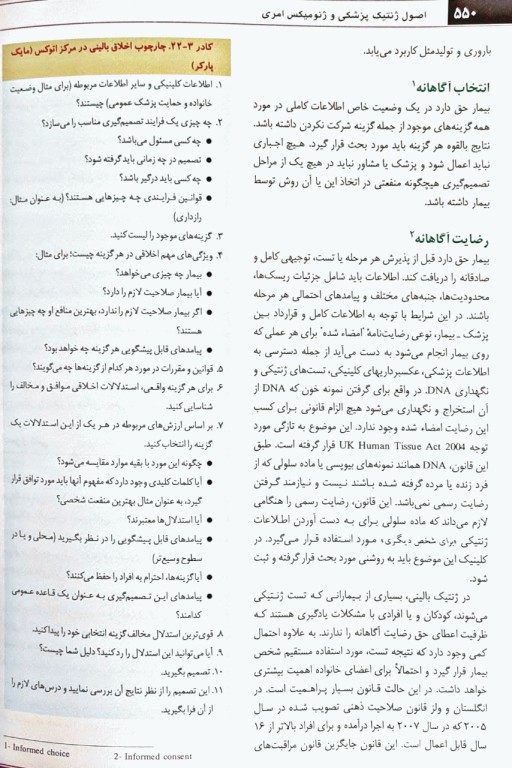 ۵۵۰ اصول ژنتیک پزشکی و ژنومیکس امری
باروری و تولیدمثل کاربرد می‌یابد.
انتخاب آگاهانه۱
بیمار حق دارد در یک وضعیت خاص اطلاعات کاملی در مورد
همه گزینه‌های موجود از جمله گزینه شرکت نکردن داشته باشد.
نتایج بالقوه هر گزینه باید مورد بحث قرار گیرد. هیچ اجباری
نباید اعمال شود و پزشک یا مشاور نباید در هیچ یک از مراحل
تصمیم‌گیری هیچگونه منفعتی در اتخاذ این یا آن روش توسط
بیمار داشته باشد.
رضایت آگاهانه۲
بیمار حق دارد قبل از پذیرش هر مرحله یا تست، توجیهی کامل و
صادقانه را دریافت کند. اطلاعات باید شامل جزئیات ریسک‌ها،
محدودیت‌ها، جنبه‌های مختلف و پیامدهای احتمالی هر مرحله
باشند. در این شرایط با توجه به اطلاعات کامل و قرارداد بین
پزشک ـ بیمار، نوعی رضایت‌نامهٔ "امضاء شده" برای هر عملی که
روی بیمار انجام می‌شود به دست می‌آید از جمله دسترسی به
اطلاعات پزشکی، عکسبرداریهای کلینیکی، تست‌های ژنتیکی و
نگهداری DNA. در واقع برای گرفتن نمونه خون که DNA از
آن استخراج و نگهداری می‌شود هیچ الزام قانونی برای کسب
این رضایت امضاء شده وجود ندارد. این موضوع به تازگی مورد
توجه UK Human Tissue Act 2004 قرار گرفته است. طبق
این قانون، DNA همانند نمونه‌های بیوپسی یا ماده سلولی که از
فرد زنده یا مرده گرفته شده باشند نیست و نیازمند گرفتن
رضایت رسمی نمی‌باشد. این قانون، رضایت رسمی را هنگامی
لازم می‌داند که ماده سلولی برای به دست آوردن اطلاعات
ژنتیکی «برای شخص دیگری» مورد استفاده قرار می‌گیرد. در
کلینیک این موضوع باید به روشنی مورد بحث قرار گرفته و ثبت
شود.
در ژنتیک بالینی، بسیاری از بیمارانی که تست ژنتیکی
می‌شوند، کودکان و یا افرادی با مشکلات یادگیری هستند که
ظرفیت اعطای حق رضایت آگاهانه را ندارند. به علاوه احتمال
کمی وجود دارد که نتیجه تست، مورد استفاده مستقیم شخص
بیمار قرار گیرد و احتمالاً برای اعضای خانواده اهمیت بیشتری
خواهد داشت. در این حالت قانون بسیار پراهمیت است. در
انگلستان و ولز قانون صلاحیت ذهنی تصویب شده در سال
۲۰۰۵ که در سال ۲۰۰۷ به اجرا درآمده و برای افراد بالاتر از ۱۶
سال قابل اعمال است. این قانون جایگزین قانون مراقبت‌های
کادر ۳-۲۲. چارچوب اخلاق بالینی در مرکز اتوکس (مایک
پارکر)
۱. اطلاعات کلینیکی و سایر اطلاعات مربوطه (برای مثال وضعیت
خانواده و حمایت پزشک عمومی) چیستند؟
۲. چه چیزی یک فرایند تصمیم‌گیری مناسب را می‌سازد؟
● چه کسی مسئول می‌باشد؟
● تصمیم در چه زمانی باید گرفته شود؟
● چه کسی باید درگیر باشد؟
● قوانین فرایندی چه چیزهایی هستند؟ (به عنوان مثال:
رازداری)
۳. گزینه‌های موجود را لیست کنید.
۴. ویژگی‌های مهم اخلاقی در هر گزینه چیست؛ برای مثال:
● بیمار چه چیزی می‌خواهد؟
● آیا بیمار صلاحیت لازم را دارد؟
● اگر بیمار صلاحیت لازم را ندارد، بهترین منافع او چه چیزهایی
هستند؟
● پیامدهای قابل پیشگویی هر گزینه چه خواهد بود؟
۵. قوانین و مقررات در مورد هر کدام از گزینه‌ها چه می‌گویند؟
۶. برای هر گزینه واقعی، استدلالات اخلاقی موافق و مخالف را
شناسایی کنید.
۷. بر اساس ارزش‌های مربوطه در هر یک از این استدلالات یک
گزینه را انتخاب کنید.
● چگونه این مورد با بقیه موارد مقایسه می‌شود؟
● آیا کلمات کلیدی وجود دارد که مفهوم آنها باید مورد توافق قرار
گیرد، به عنوان مثال بهترین منفعت شخصی؟
● آیا استدلال‌ها معتبرند؟
● پیامدهای قابل پیشگویی را در نظر بگیرید (محلی و یا در
سطوح وسیع‌تر)
● آیا گزینه‌ها، احترام به افراد را حفظ می‌کنند؟
● پیامدهای این تصمیم‌گیری به عنوان یک قاعده عمومی
کدامند؟
۸. قوی‌ترین استدلال مخالف گزینه انتخابی خود را پیدا کنید.
۹. آیا می‌توانید این استدلال را رد کنید؟ دلیل شما چیست؟
۱۰. تصمیم بگیرید.
۱۱. این تصمیم را از نظر نتایج آن بررسی نمایید و درس‌های لازم را
از آن فرا بگیرید.
1- Informed choice 2- Informed consent